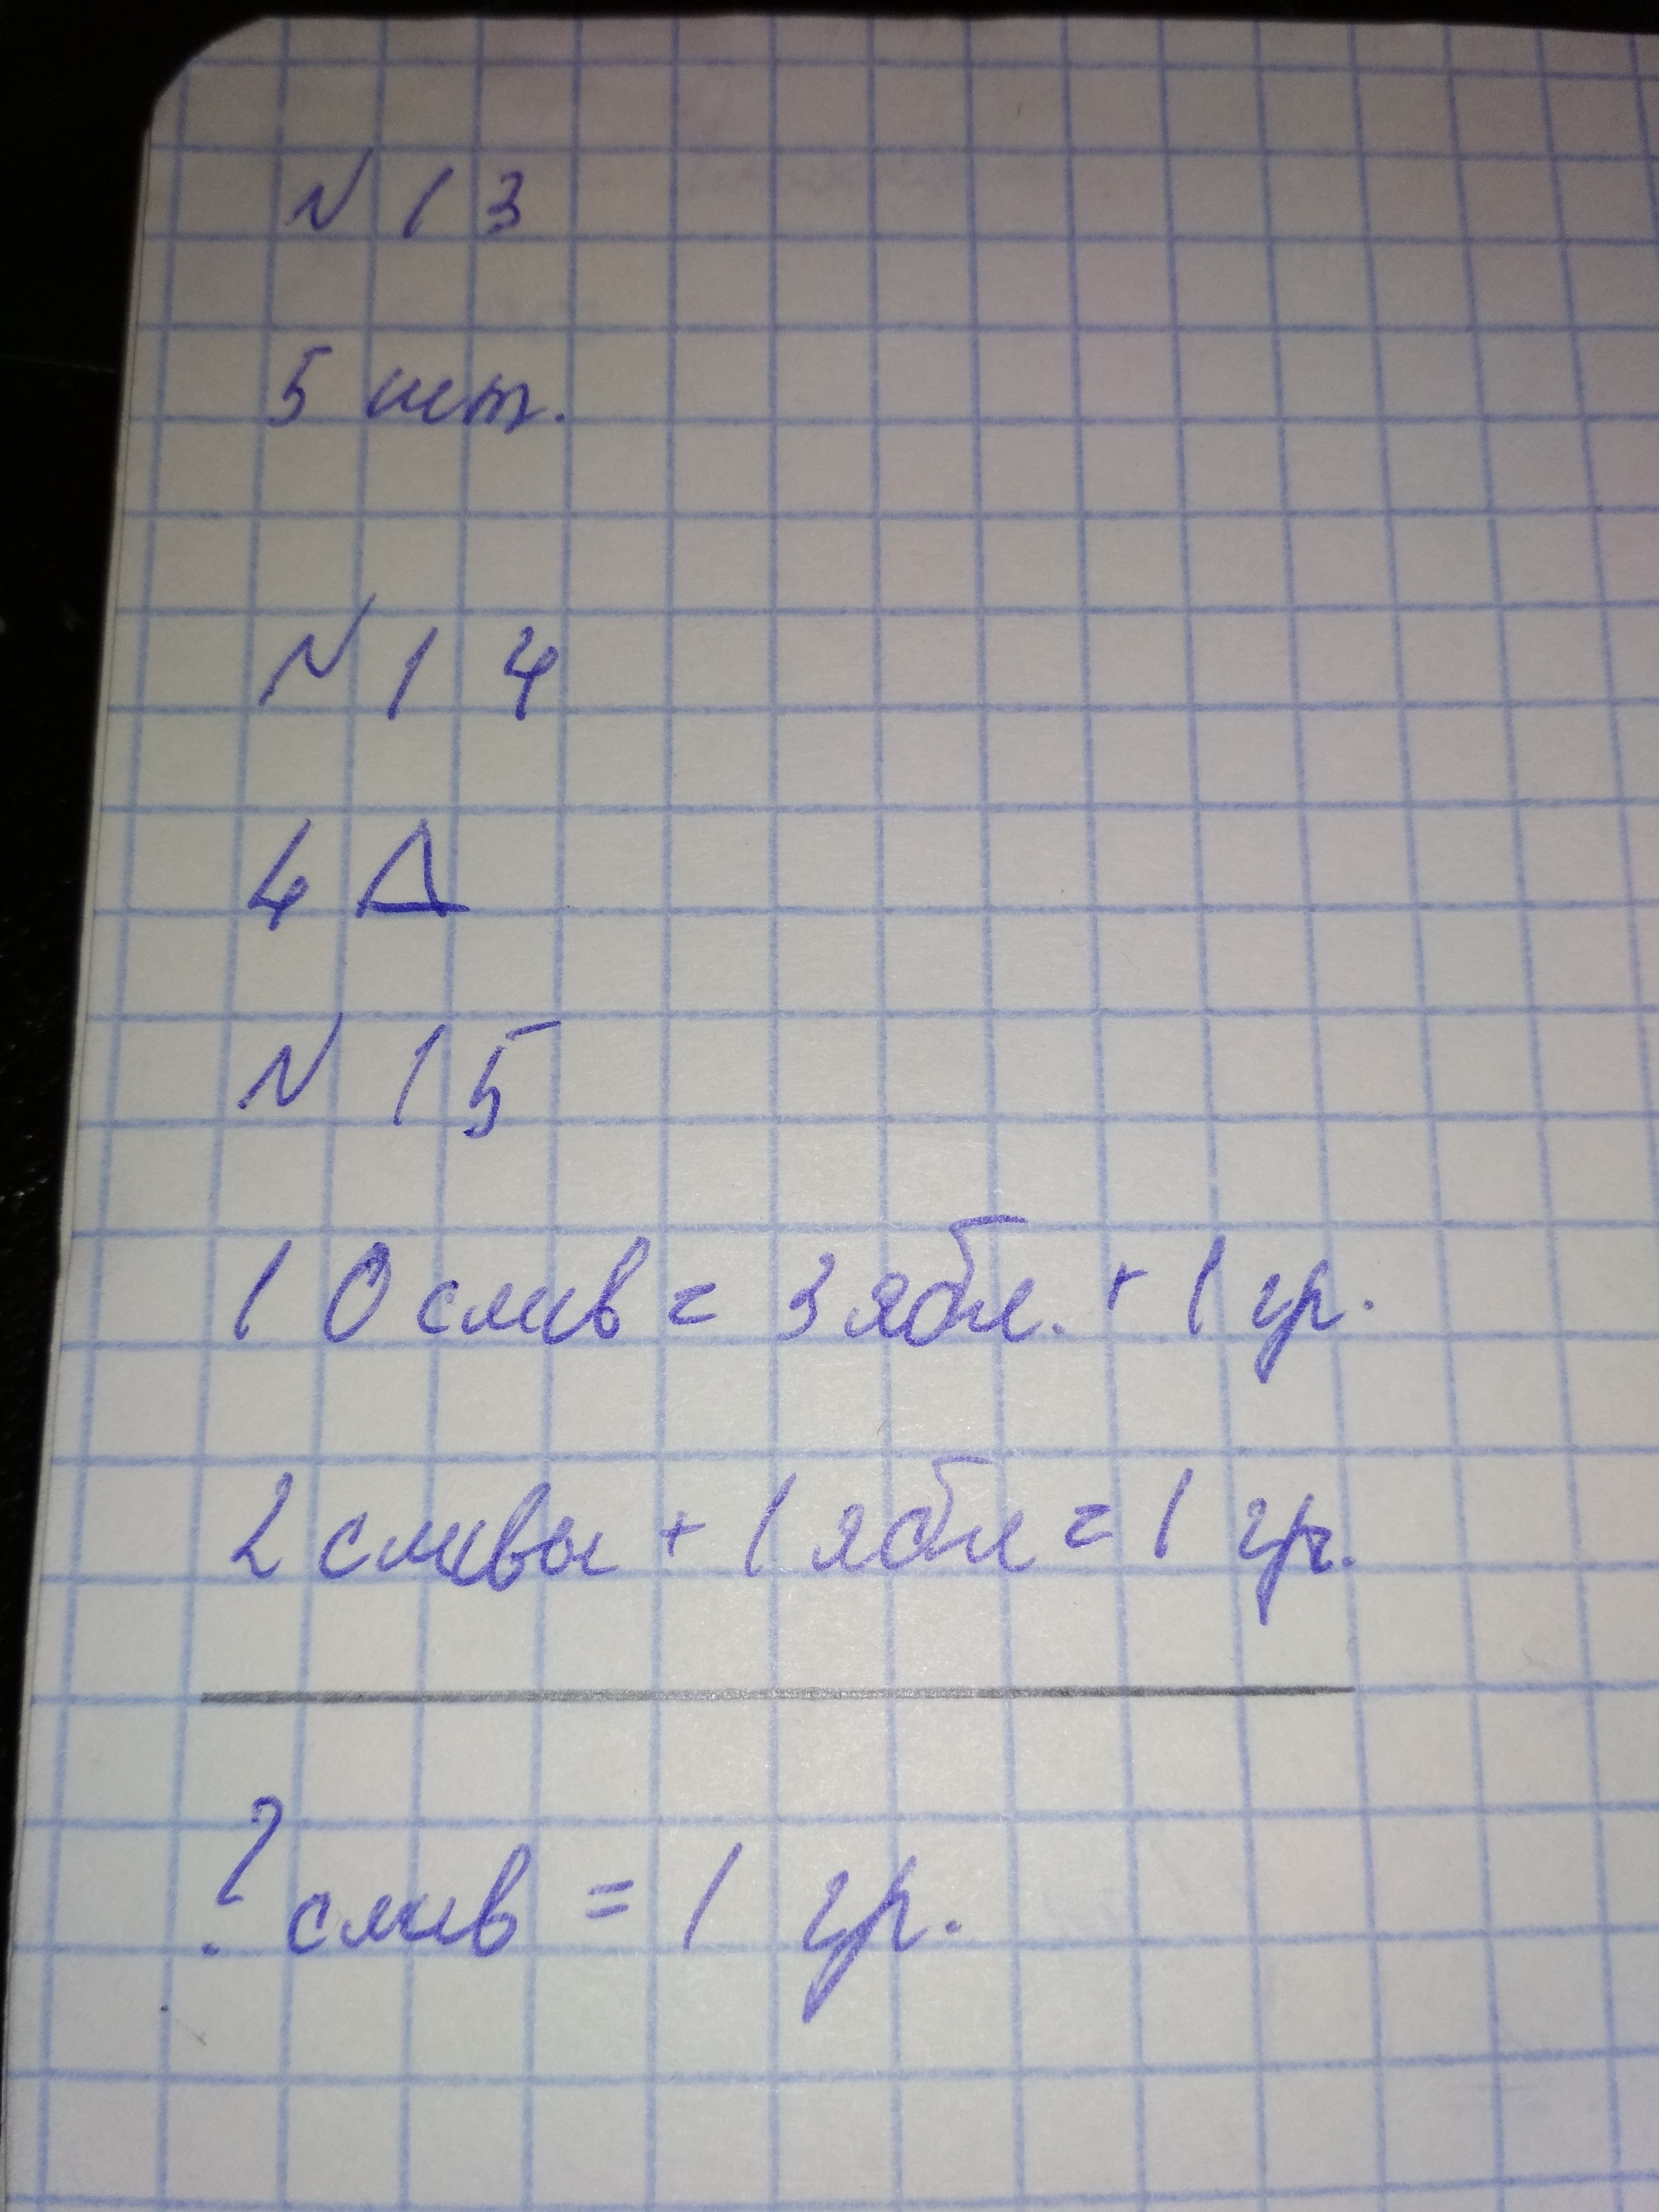 N 13
5 шт.
N 14
4 Δ
N 15
10 слив = 3 ябл. + 1 гр.
2 сливы + 1 ябл = 1 гр.
? слив = 1 гр.